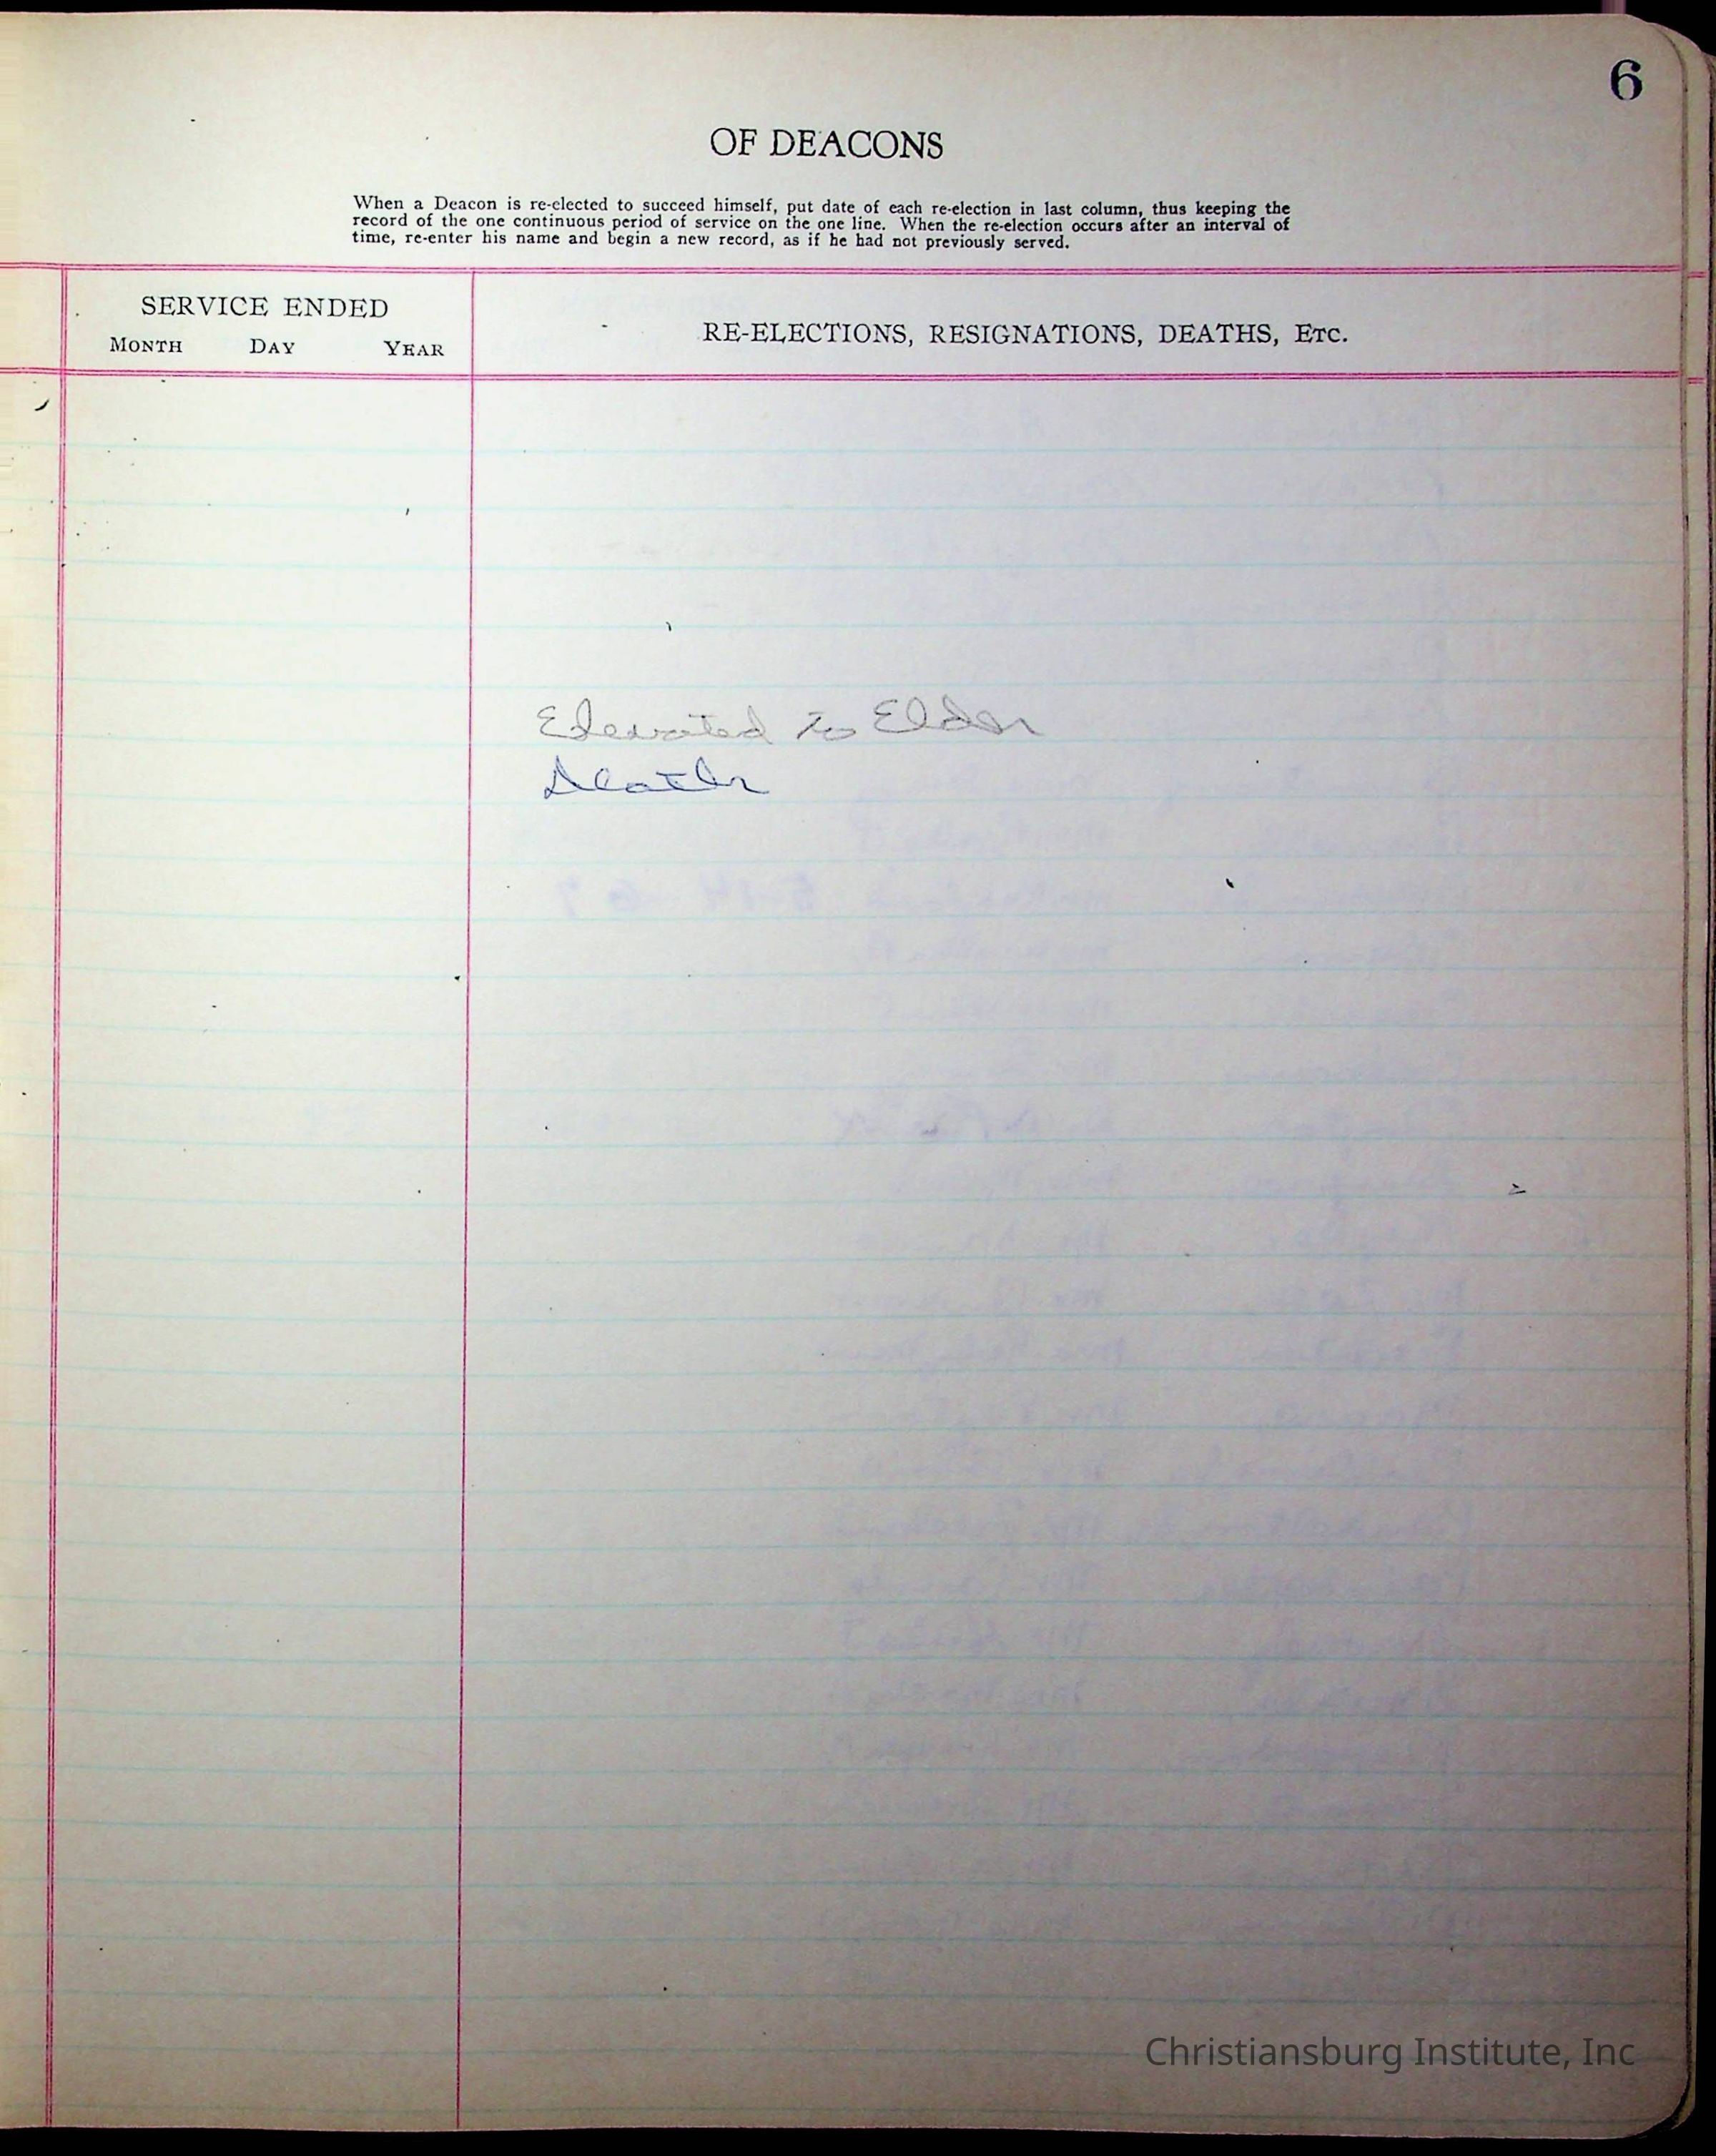 6
OF DEACONS
When a Deacon is re-elected to succeed himself, put date of each re-election in last column, thus keeping the
record of the one continuous period of service on the one line. When the re-election occurs after an interval of
time, re-enter his name and begin a new record, as if he had not previously served.
SERVICE ENDED
MONTH DAY YEAR
RE-ELECTIONS, RESIGNATIONS, DEATHS, ETC.
Elevated to Elder
Death
Christiansburg Institute, Inc